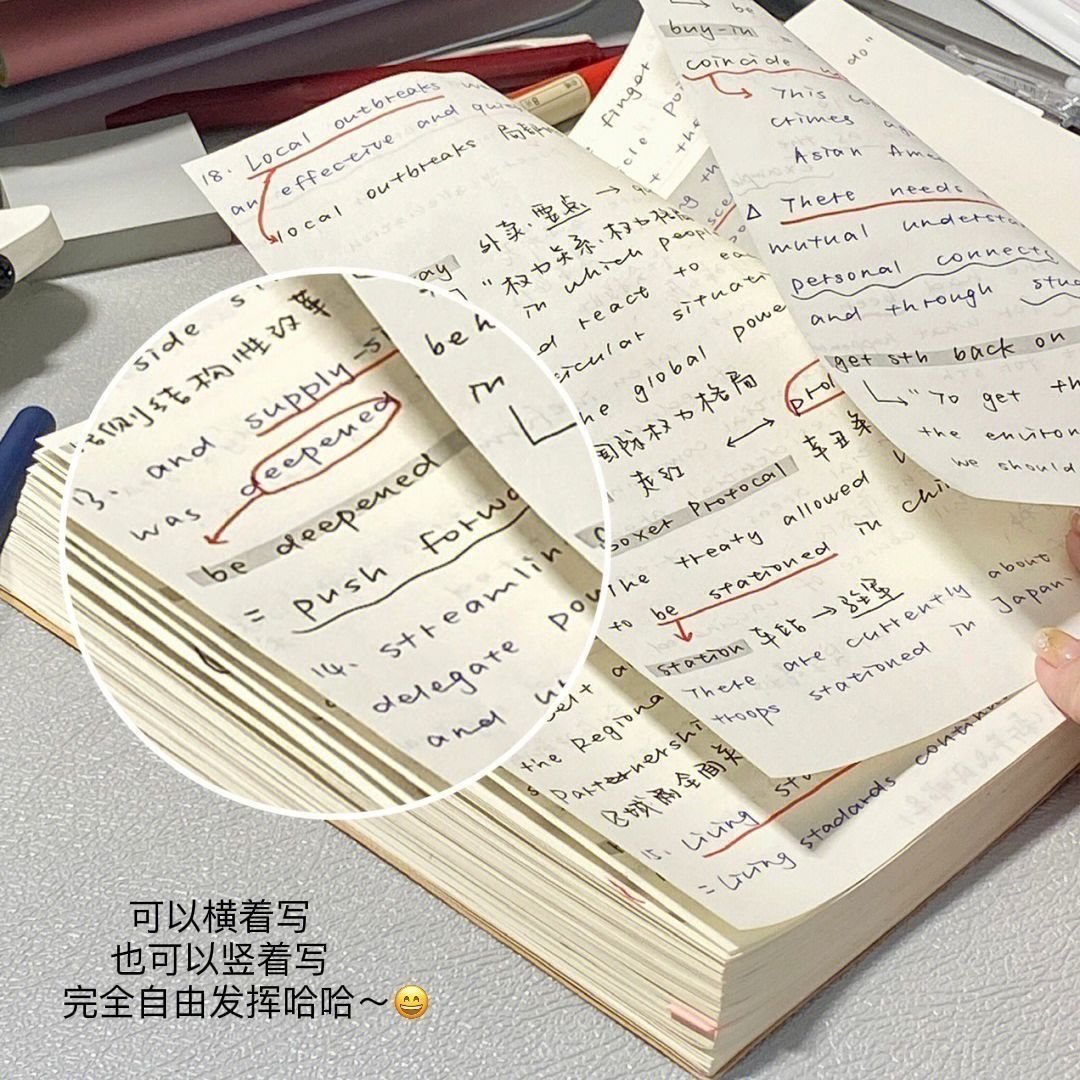 18. Local outbreaks w
an effective and qui
local outbreaks 局部
外卖:壁点 →
ay
"权力关系,权力格局
in which people
d react to ea
ticular situati
he global powe
国际权力格局
走红
Boxer Protocal 辛丑条
The treaty allowed
to be stationed in chi
station 车站→驻军
There are currently about
troops stationed in Japan.
the Regiona
Parternershi
区域全面
15. Living sta
= living stadards contin
side s
侧结构性改革
13. and supply-s
was deepened
be deepened
= push forwa
14. streamlin
delegate pow
and u
beh
in
do"
finger
cle poi
the
be
buy-in =
coincide w
This
crimes ag
Asian Ame
△ There needs
mutual understa
personal connects
and through stud
get sth back on
"To get th
the environ
we should
可以横着写
也可以竖着写
完全自由发挥哈哈～😄